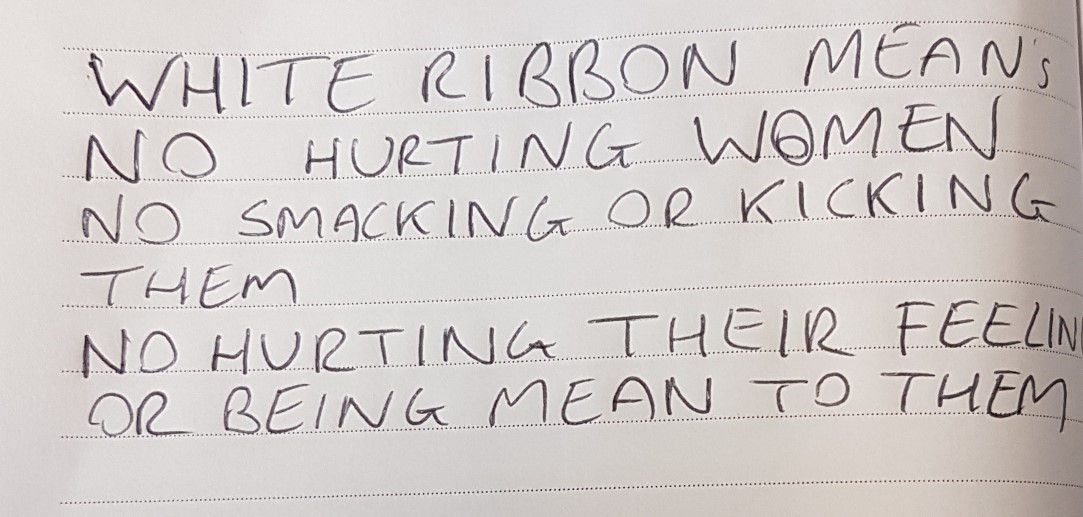 WHITE RIBBON MEANS
NO HURTING WOMEN
NO SMACKING OR KICKING
THEM
NO HURTING THEIR FEELIN
OR BEING MEAN TO THEM